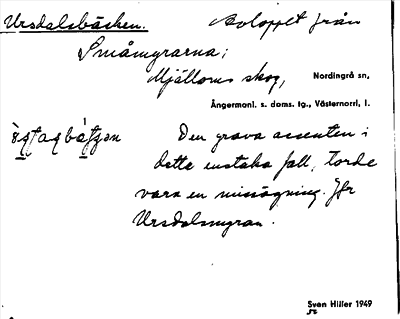 Ursdalsbäcken. Avloppet från
Småmyrarna;
Mjälloms skog, Nordingrå sn,
Ångermanl. s. doms. tg., Västernorrl. l.
Den grava accenten i
detta enstaka fall, torde
vara en missägning. Jfr
Ursdalsmyran.
Sven Hiller 1949